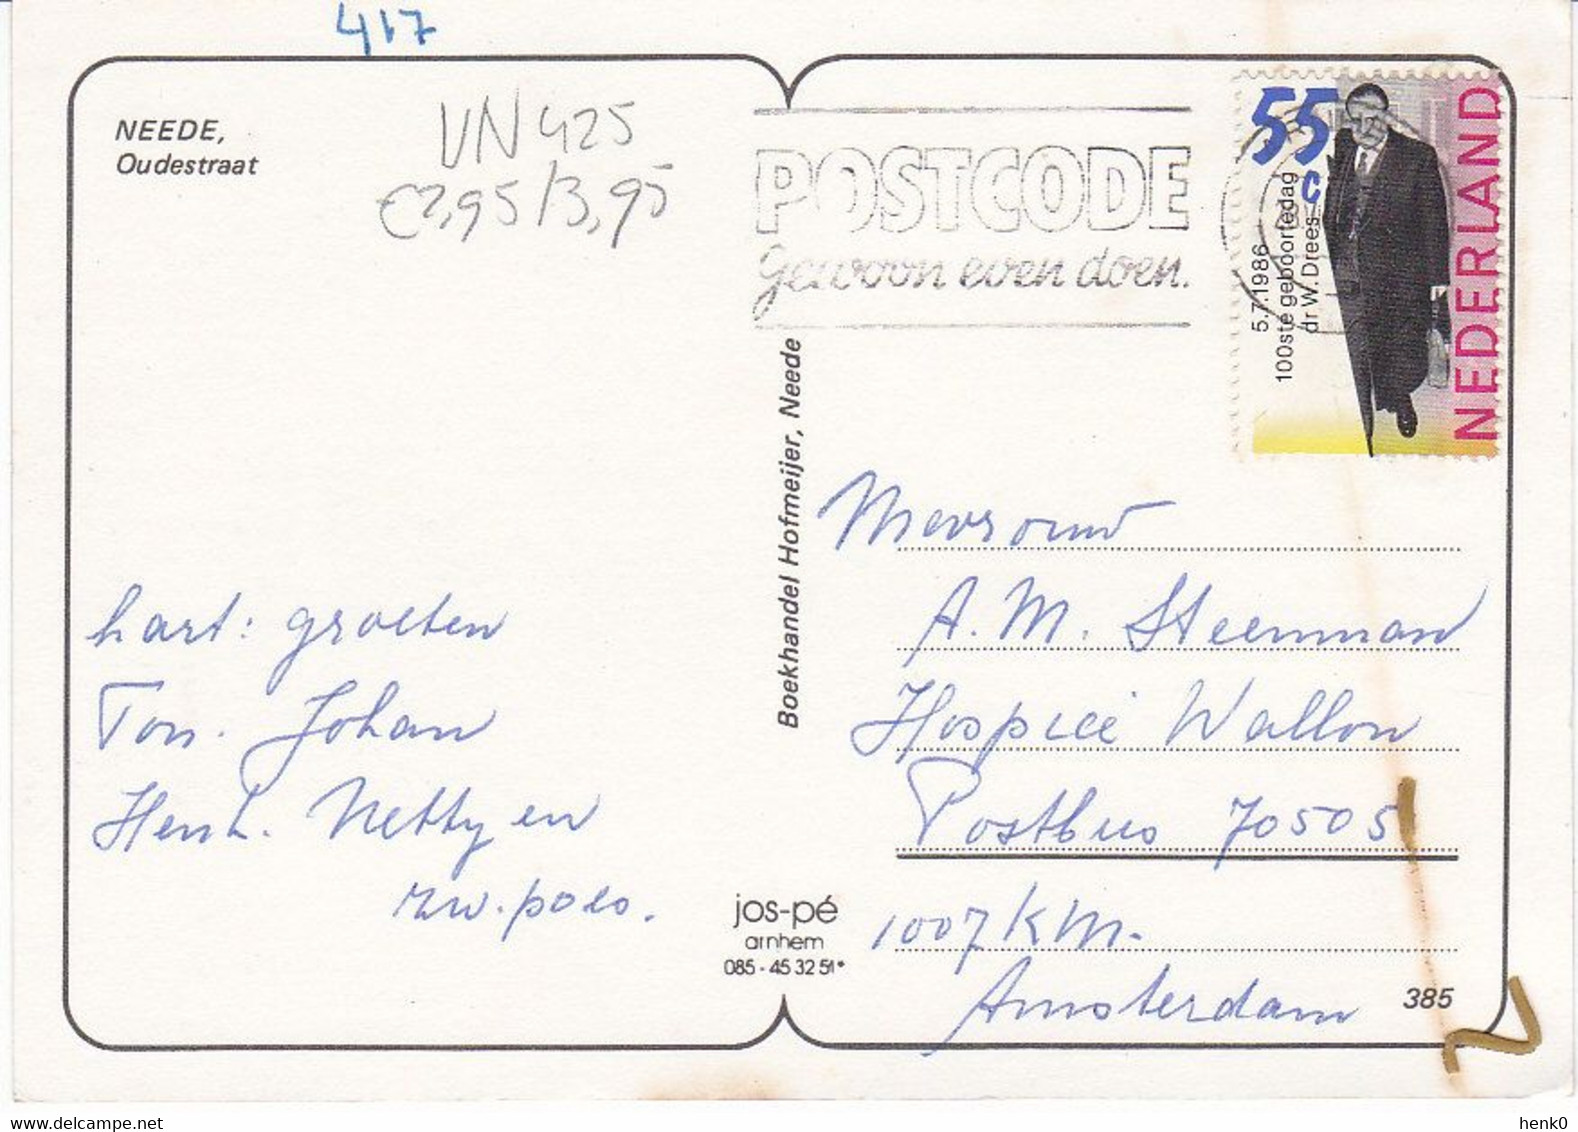 417
NEEDE,
Oudestraat
VN 425
€2,95/3,95
POSTCODE
gewoon even doen.
55
c
5.7.1986
100ste geboortedag
dr W. Drees
NEDERLAND
hart: groeten
Ton. Johan
Henk. Netty en
zw. poes.
Boekhandel Hofmeijer, Neede
jos-pé
arnhem
085 - 45 32 51*
Mevrouw
A. M. Steenman
Hospice Wallon
Postbus 70505
1007 KM.
Amsterdam
385
www.delcampe.net
henk0